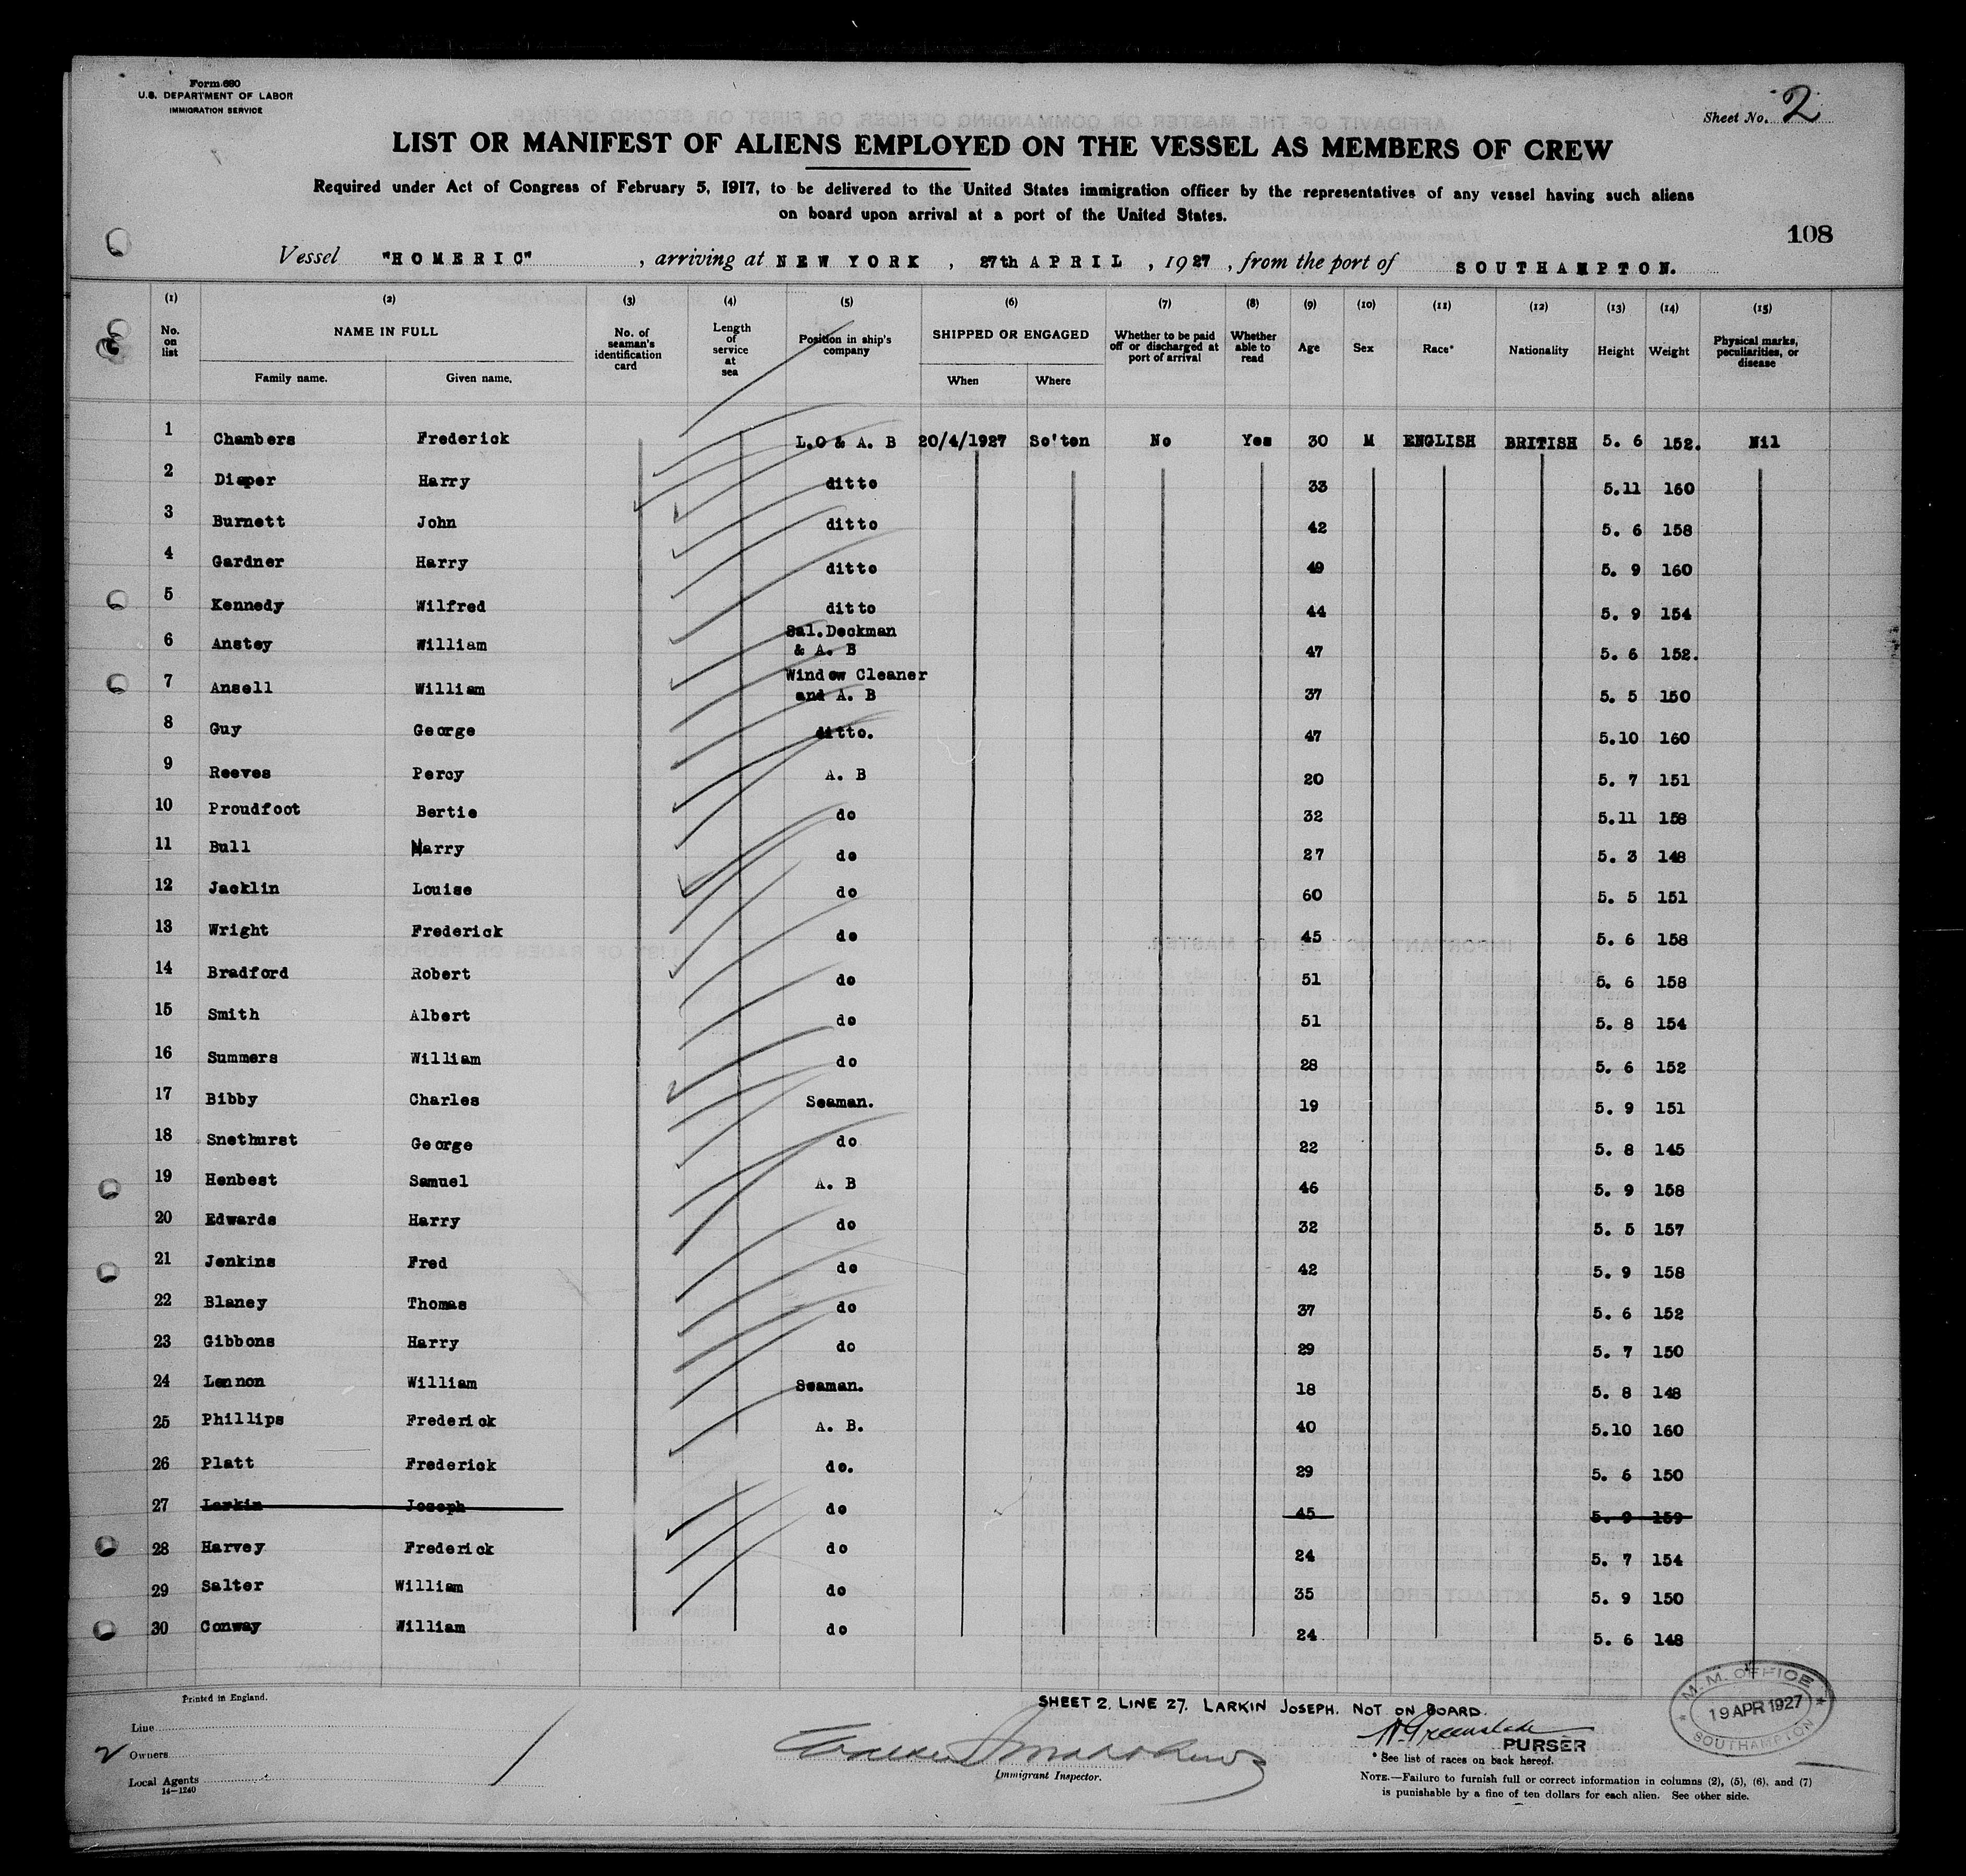 Form 680
U.S. DEPARTMENT OF LABOR
IMMIGRATION SERVICE
Sheet No. 2
LIST OR MANIFEST OF ALIENS EMPLOYED ON THE VESSEL AS MEMBERS OF CREW
Required under Act of Congress of February 5, 1917, to be delivered to the United States immigration officer by the representatives of any vessel having such aliens
on board upon arrival at a port of the United States.
108
Vessel "HOMERIC", arriving at NEW YORK, 27th APRIL, 1927, from the port of SOUTHAMPTON.
(1) (2) (3) (4) (5) (6) (7) (8) (9) (10) (11) (12) (13) (14) (15)
No. on list NAME IN FULL Family name. Given name. No. of seaman's identification card Length of service at sea Position in ship's company SHIPPED OR ENGAGED When Where Whether to be paid off or discharged at port of arrival Whether able to read Age Sex Race* Nationality Height Weight Physical marks, peculiarities, or disease
1 Chambers Frederick L.O & A. B 20/4/1927 So'ton No Yes 30 M ENGLISH BRITISH 5. 6 152. Nil
2 Diaper Harry ditto 33 5.11 160
3 Burnett John ditto 42 5. 6 158
4 Gardner Harry ditto 49 5. 9 160
5 Kennedy Wilfred ditto 44 5. 9 154
6 Anstey William Sal.Deckman & A. B 47 5. 6 152.
7 Ansell William Window Cleaner and A. B 37 5. 5 150
8 Guy George ditto. 47 5.10 160
9 Reeves Percy A. B 20 5. 7 151
10 Proudfoot Bertie do 32 5.11 158
11 Bull Harry do 27 5. 3 148
12 Jacklin Louise do 60 5. 5 151
13 Wright Frederick do 45 5. 6 158
14 Bradford Robert do 51 5. 6 158
15 Smith Albert do 51 5. 8 154
16 Summers William do 28 5. 6 152
17 Bibby Charles Seaman. 19 5. 9 151
18 Snethurst George do 22 5. 8 145
19 Henbest Samuel A. B 46 5. 9 158
20 Edwards Harry do 32 5. 5 157
21 Jenkins Fred do 42 5. 9 158
22 Blaney Thomas do 37 5. 6 152
23 Gibbons Harry do 29 5. 7 150
24 Lennon William Seaman. 18 5. 8 148
25 Phillips Frederick A. B. 40 5.10 160
26 Platt Frederick do. 29 5. 6 150
27 Larkin Joseph do 45 5. 9 159
28 Harvey Frederick do 24 5. 7 154
29 Salter William do 35 5. 9 150
30 Conway William do 24 5. 6 148
Printed in England.
SHEET 2. LINE 27. LARKIN JOSEPH. NOT ON BOARD.
M.M. OFFICE
19 APR 1927
SOUTHAMPTON
Line
Owners
Local Agents
14—1240
Immigrant Inspector.
PURSER
* See list of races on back hereof.
NOTE.—Failure to furnish full or correct information in columns (2), (5), (6), and (7)
is punishable by a fine of ten dollars for each alien. See other side.